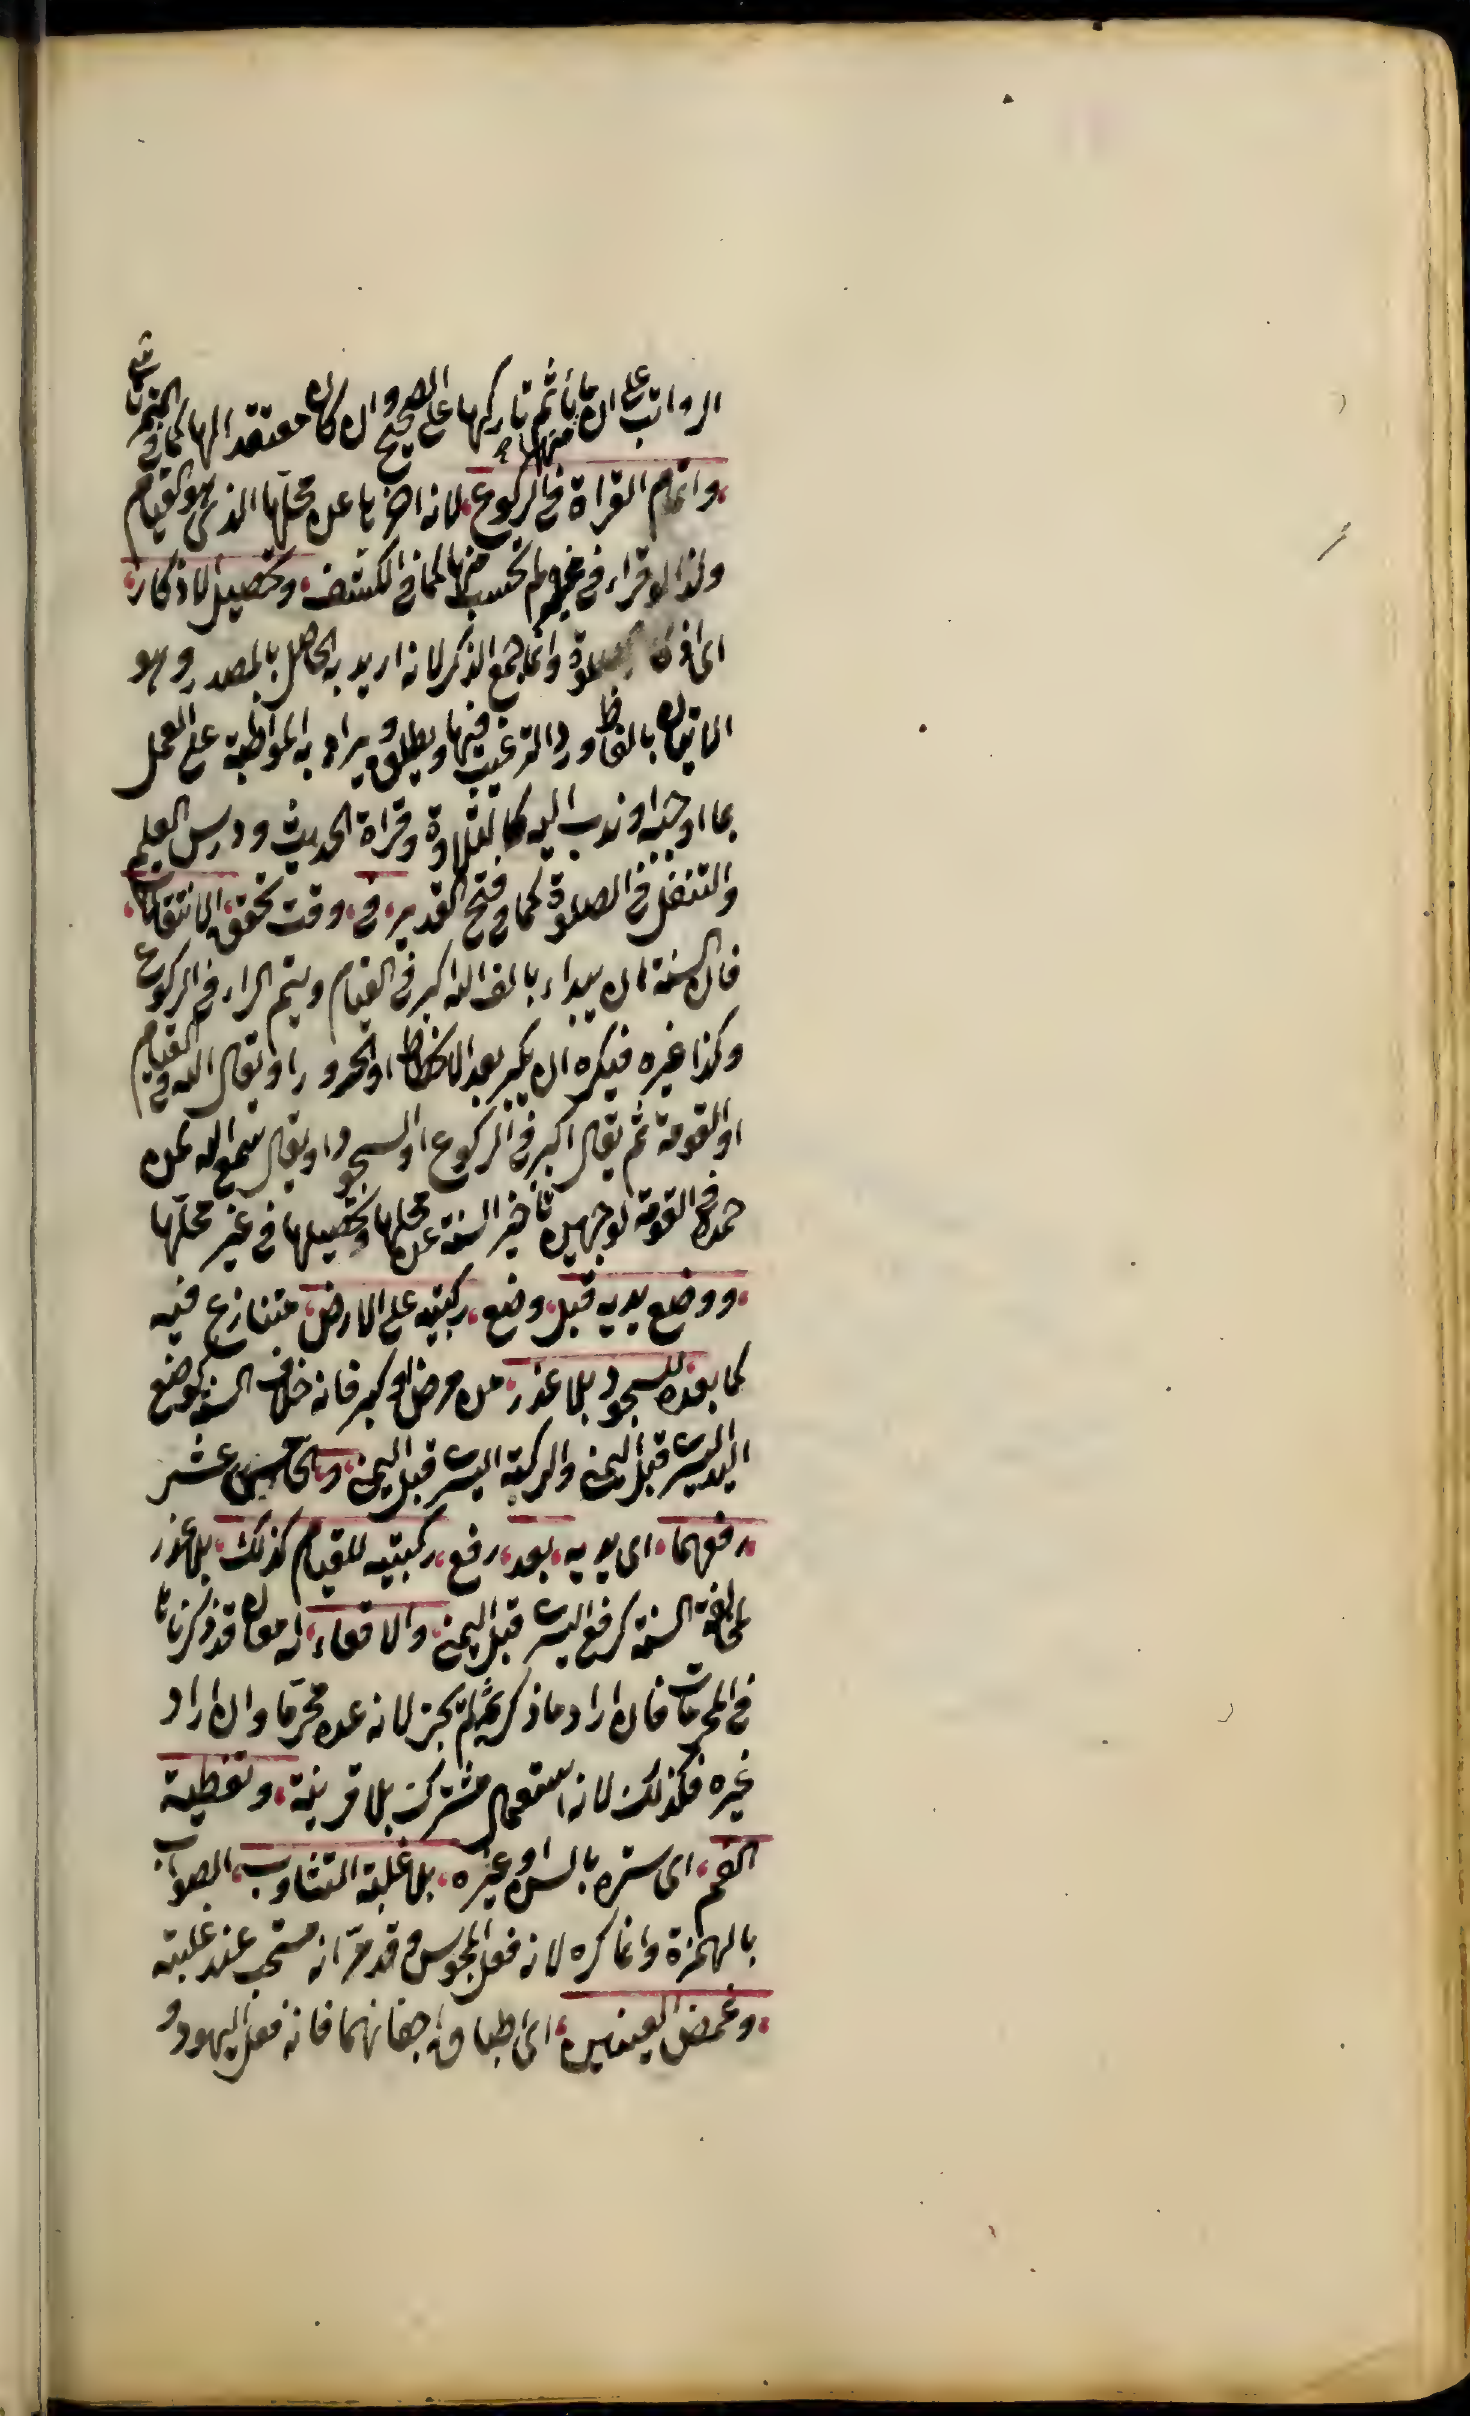 الرواتب على ان يأثم تاركها على الصحيح وان كان معتقدا لها كما في المنح
واتمام القراة في الركوع لانه اخرها عن محلها الذي هو القيام
ولذا لو قراء في غيره لم تحسب منها كما في الكشف وتحصيل الاذكار
اى اذكار الصلوة وانما جمع الذكر لانه اريد به الحاصل بالمصدر وهو
الاتيان بالفاظ ورد الترغيب فيها ويطلق ويراد به المواظبة على العمل
بما اوجبه او ندب اليه كالتلاوة وقراة الحديث ودرس العلم
والتنفل في الصلوة كما في فتح القدير في وقت تحقق الانتقالات
فان السنة ان يبداء بالف الله اكبر في القيام ويتم الراء في الركوع
وكذا غيره فيكره ان يكبر بعد الانحطاط او الخرور او يقال الله في القيام
او القومة ثم يقال اكبر في الركوع او السجود او يقال سمع الله لمن
حمده في القومة لوجهين تأخير السنة عن محلها وتحصيلها في غير محلها
ووضع يديه قبل وضع ركبتيه على الارض متنازع فيه
كما بعده للسجود بلا عذر من مرض او كبر فانه خلاف السنة كوضع
اليد اليسرى قبل اليمنى والركبة اليسرى قبل اليمنى والخامس عشر
رفعهما اى يديه بعد رفع ركبتيه للقيام كذلك بلا عذر
لمخالفة السنة كرفع اليسرى قبل اليمنى والاقعاء له معان قد ذكرناها
في المحرمات فان اراد ما ذكر ثمه لم يجز لانه عده محرما وان اراد
غيره فكذلك لانه استعمال مشترك بلا قرينة وتغطية
الفم اى ستره باليد او غيره بلا غلبة التثاوب الصواب
بالهمزة وانما كره لانه فعل المجوس وقد مر انه مستحب عند غلبته
وغمض العينين اى اطباق اجفانهما فانه فعل اليهود و